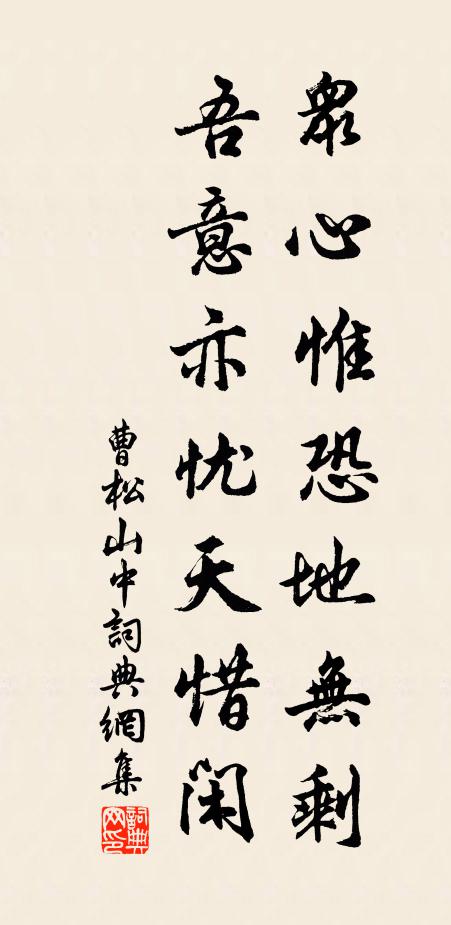 眾心惟恐地無剩
吾意亦忧天惜閑
曹松山中詞典網集
詞典网印